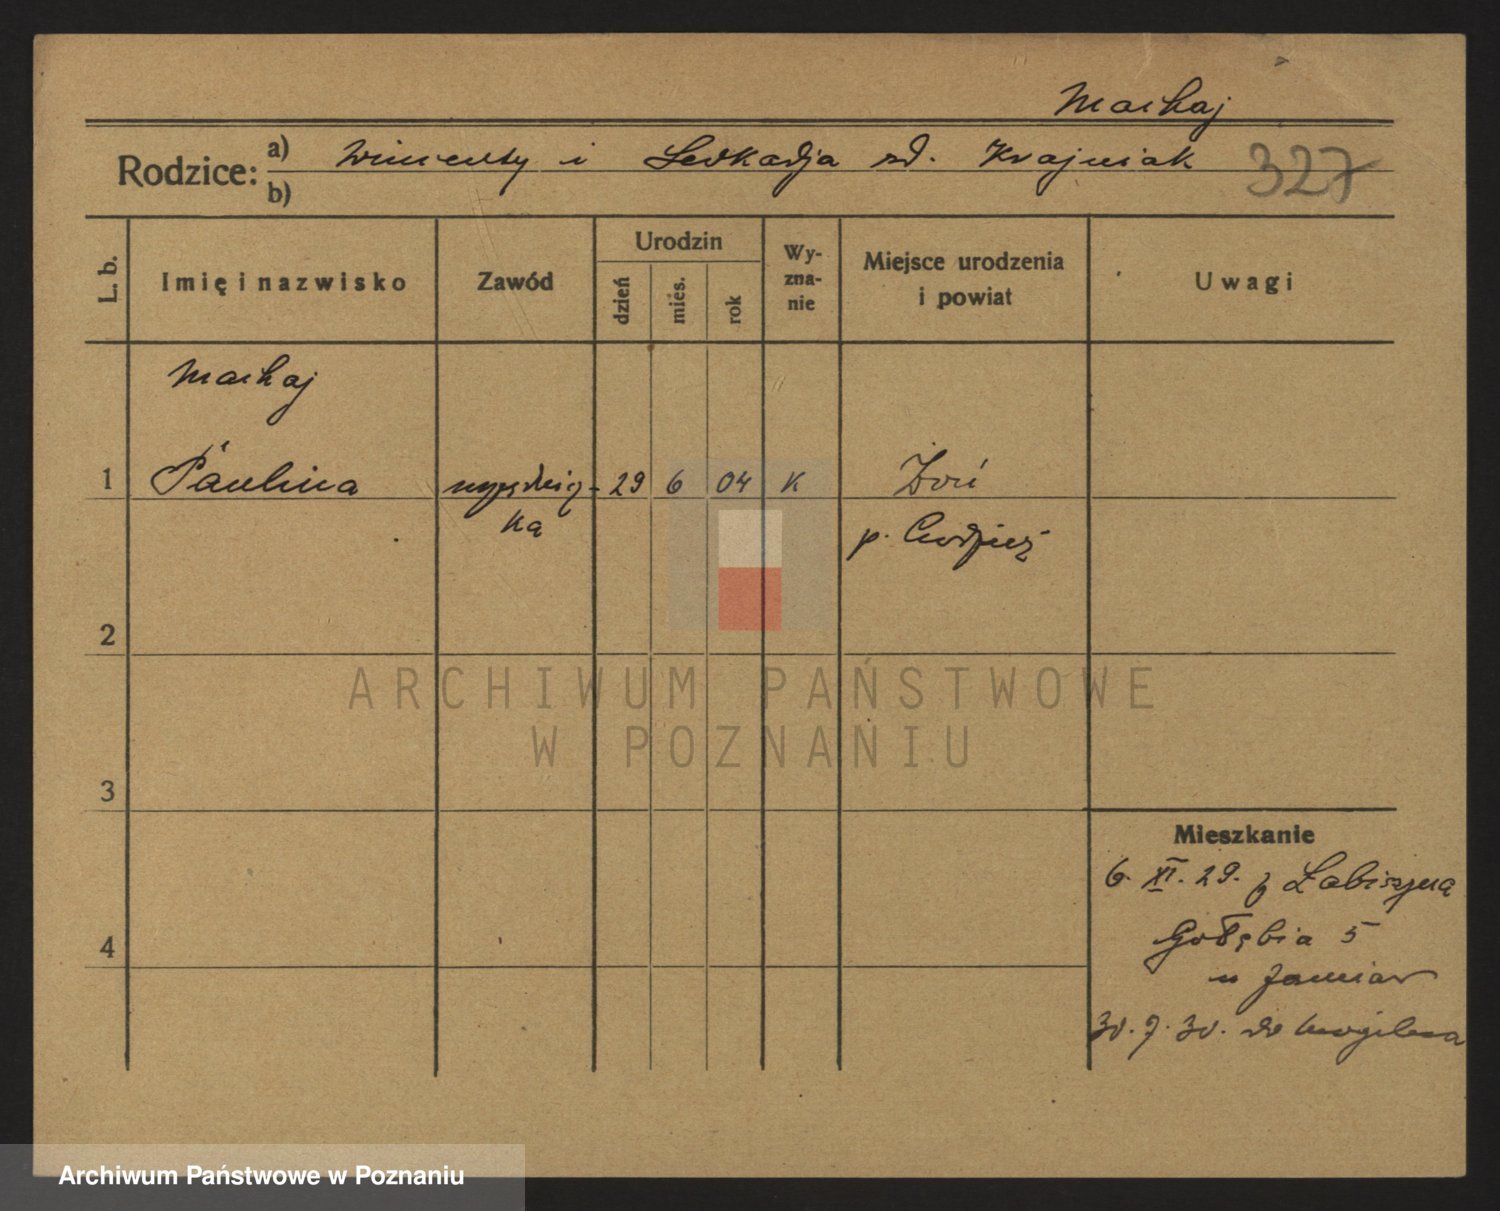 Machaj
Rodzice: a) Wincenty i Leokadja zd. Krajniak
b)
327
L. b.
Imię i nazwisko
Zawód
Urodzin
dzień
mies.
rok
Wy-
zna-
nie
Miejsce urodzenia
i powiat
Uwagi
Machaj
1 Paulina 29 6 04 K Żoń
ka
p. Chodzież
2
3
4
Mieszkanie
6. XI. 29. z Łabiszyna
Gołębia 5
u
30. 7. 30. do Mogilna
ARCHIWUM PAŃSTWOWE
W POZNANIU
Archiwum Państwowe w Poznaniu